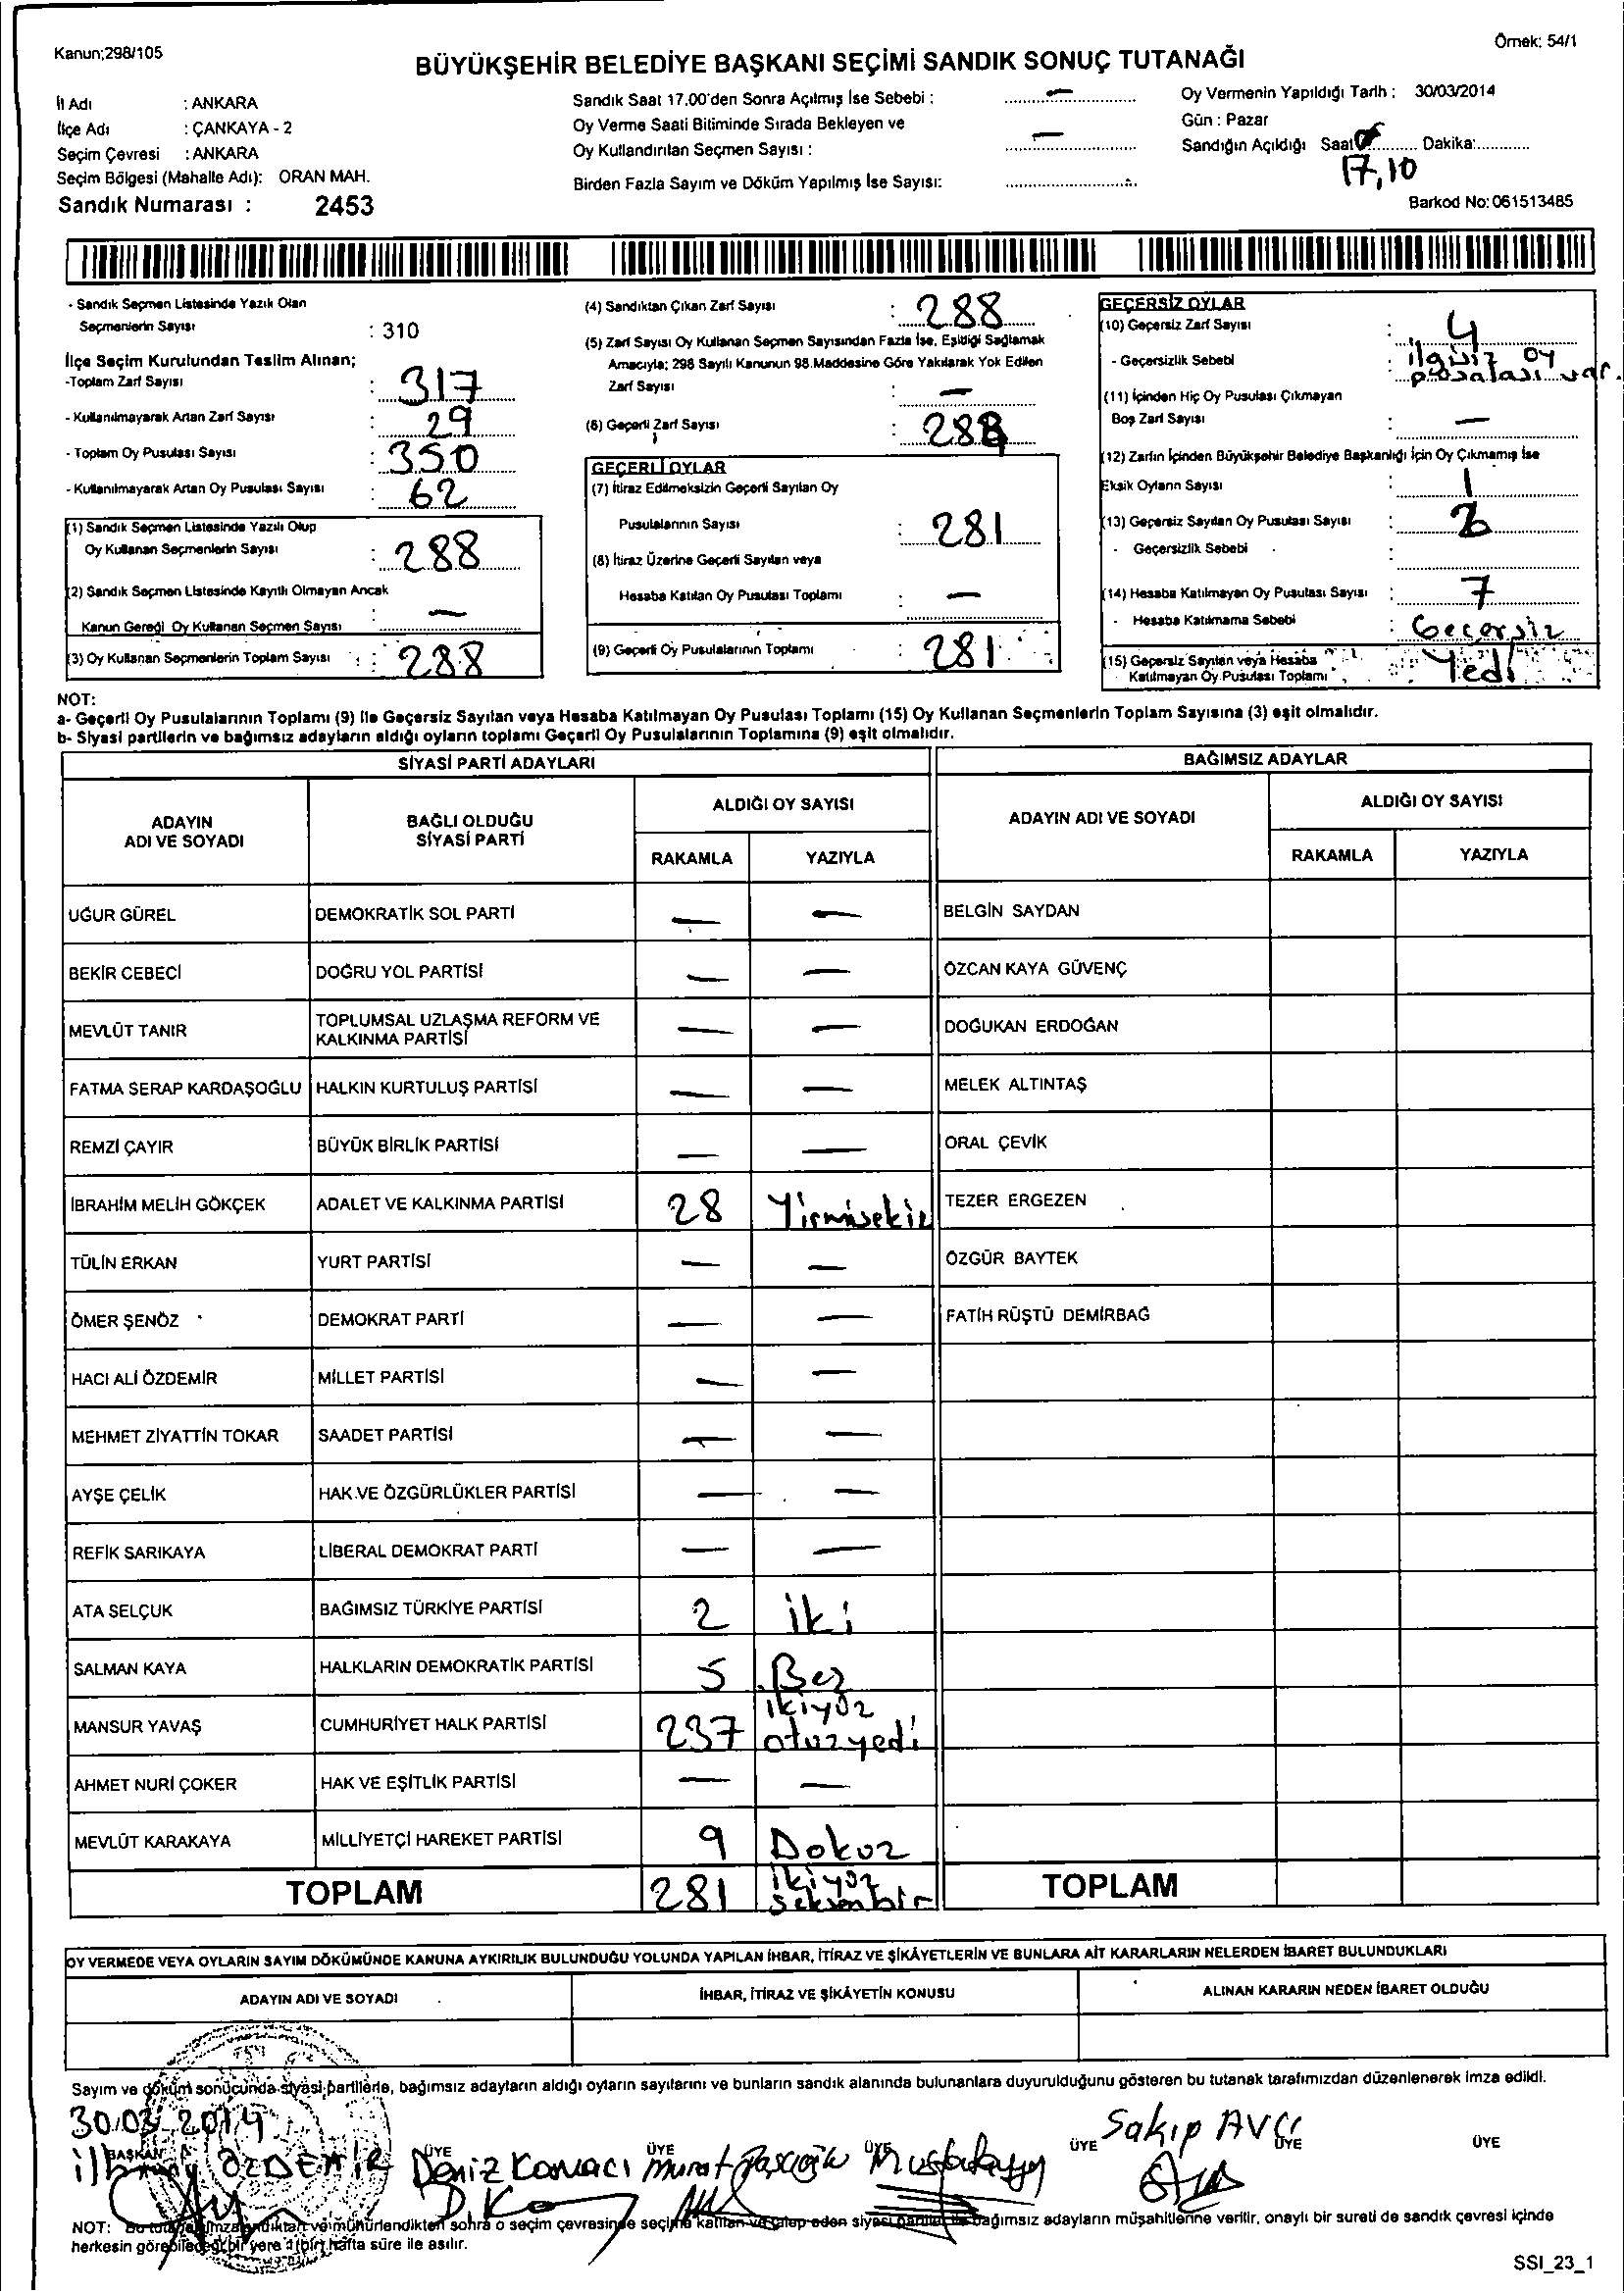 Kanun;298/105
Örnek: 54/1
BÜYÜKŞEHİR BELEDİYE BAŞKANI SEÇİMİ SANDIK SONUÇ TUTANAĞI
İl Adı : ANKARA
İlçe Adı : ÇANKAYA - 2
Seçim Çevresi : ANKARA
Seçim Bölgesi (Mahalle Adı): ORAN MAH.
Sandık Numarası : 2453
Sandık Saat 17.00'den Sonra Açılmış İse Sebebi : —
Oy Verme Saati Bitiminde Sırada Bekleyen ve
Oy Kullandırılan Seçmen Sayısı : —
Birden Fazla Sayım ve Döküm Yapılmış İse Sayısı:
Oy Vermenin Yapıldığı Tarih : 30/03/2014
Gün : Pazar
Sandığın Açıldığı Saat Dakika:
17,10
Barkod No:061513485
- Sandık Seçmen Listesinde Yazılı Olan
Seçmenlerin Sayısı : 310
İlçe Seçim Kurulundan Teslim Alınan;
-Toplam Zarf Sayısı : 317
- Kullanılmayarak Artan Zarf Sayısı : 29
- Toplam Oy Pusulası Sayısı : 350
- Kullanılmayarak Artan Oy Pusulası Sayısı : 62
(1) Sandık Seçmen Listesinde Yazılı Olup
Oy Kullanan Seçmenlerin Sayısı : 288
(2) Sandık Seçmen Listesinde Kayıtlı Olmayan Ancak
Kanun Gereği Oy Kullanan Seçmen Sayısı : —
(3) Oy Kullanan Seçmenlerin Toplam Sayısı : 288
(4) Sandıktan Çıkan Zarf Sayısı : 288
(5) Zarf Sayısı Oy Kullanan Seçmen Sayısından Fazla İse, Eşitliği Sağlamak
Amacıyla; 298 Sayılı Kanunun 98.Maddesine Göre Yakılarak Yok Edilen
Zarf Sayısı : —
(6) Geçerli Zarf Sayısı : 288
GEÇERLİ OYLAR
(7) İtiraz Edilmeksizin Geçerli Sayılan Oy
Pusulalarının Sayısı : 281
(8) İtiraz Üzerine Geçerli Sayılan veya
Hesaba Katılan Oy Pusulası Toplamı : —
(9) Geçerli Oy Pusulalarının Toplamı : 281
GEÇERSİZ OYLAR
(10) Geçersiz Zarf Sayısı : 4
- Geçersizlik Sebebi : ilgisiz oy
pusulası var.
(11) İçinden Hiç Oy Pusulası Çıkmayan
Boş Zarf Sayısı : —
(12) Zarfın İçinden Büyükşehir Belediye Başkanlığı İçin Oy Çıkmamış İse
Eksik Oyların Sayısı : 1
(13) Geçersiz Sayılan Oy Pusulası Sayısı :
- Geçersizlik Sebebi :
(14) Hesaba Katılmayan Oy Pusulası Sayısı : 7
- Hesaba Katılmama Sebebi : Geçersiz
(15) Geçersiz Sayılan veya Hesaba
Katılmayan Oy Pusulası Toplamı : Yedi
NOT:
a- Geçerli Oy Pusulalarının Toplamı (9) İle Geçersiz Sayılan veya Hesaba Katılmayan Oy Pusulası Toplamı (15) Oy Kullanan Seçmenlerin Toplam Sayısına (3) eşit olmalıdır.
b- Siyasi partilerin ve bağımsız adayların aldığı oyların toplamı Geçerli Oy Pusulalarının Toplamına (9) eşit olmalıdır.
SİYASİ PARTİ ADAYLARI
BAĞIMSIZ ADAYLAR
ADAYIN
ADI VE SOYADI
BAĞLI OLDUĞU
SİYASİ PARTİ
ALDIĞI OY SAYISI
RAKAMLA YAZIYLA
ADAYIN ADI VE SOYADI
ALDIĞI OY SAYISI
RAKAMLA YAZIYLA
UĞUR GÜREL DEMOKRATİK SOL PARTİ — — BELGİN SAYDAN
BEKİR CEBECİ DOĞRU YOL PARTİSİ — — ÖZCAN KAYA GÜVENÇ
MEVLÜT TANIR TOPLUMSAL UZLAŞMA REFORM VE
KALKINMA PARTİSİ — — DOĞUKAN ERDOĞAN
FATMA SERAP KARDAŞOĞLU HALKIN KURTULUŞ PARTİSİ — — MELEK ALTINTAŞ
REMZİ ÇAYIR BÜYÜK BİRLİK PARTİSİ — — ORAL ÇEVİK
İBRAHİM MELİH GÖKÇEK ADALET VE KALKINMA PARTİSİ 28 Yirmisekiz TEZER ERGEZEN
TÜLİN ERKAN YURT PARTİSİ — — ÖZGÜR BAYTEK
ÖMER ŞENÖZ DEMOKRAT PARTİ — — FATİH RÜŞTÜ DEMİRBAĞ
HACI ALİ ÖZDEMİR MİLLET PARTİSİ — —
MEHMET ZİYATTİN TOKAR SAADET PARTİSİ — —
AYŞE ÇELİK HAK VE ÖZGÜRLÜKLER PARTİSİ — —
REFİK SARIKAYA LİBERAL DEMOKRAT PARTİ — —
ATA SELÇUK BAĞIMSIZ TÜRKİYE PARTİSİ 2 iki
SALMAN KAYA HALKLARIN DEMOKRATİK PARTİSİ 5 Beş
MANSUR YAVAŞ CUMHURİYET HALK PARTİSİ 237 ikiyüz
otuzyedi
AHMET NURİ ÇOKER HAK VE EŞİTLİK PARTİSİ — —
MEVLÜT KARAKAYA MİLLİYETÇİ HAREKET PARTİSİ 9 Dokuz
TOPLAM 281 ikiyüz
seksenbir
TOPLAM
OY VERMEDE VEYA OYLARIN SAYIM DÖKÜMÜNDE KANUNA AYKIRILIK BULUNDUĞU YOLUNDA YAPILAN İHBAR, İTİRAZ VE ŞİKÂYETLERİN VE BUNLARA AİT KARARLARIN NELERDEN İBARET BULUNDUKLARI
ADAYIN ADI VE SOYADI İHBAR, İTİRAZ VE ŞİKÂYETİN KONUSU ALINAN KARARIN NEDEN İBARET OLDUĞU
Sayım ve döküm sonucunda siyasi partilerle, bağımsız adayların aldığı oyların sayılarını ve bunların sandık alanında bulunanlara duyurulduğunu gösteren bu tutanak tarafımızdan düzenlenerek imza edildi.
30.03.2014
BAŞKAN ÜYE ÜYE ÜYE ÜYE ÜYE ÜYE
ÖZDEMİR Deniz Murat Sakıp AVCI
NOT: Bu tutanak imzalandıktan ve mühürlendikten sonra o seçim çevresinde seçime katılan ve talep eden siyasi partiler ile bağımsız adayların müşahitlerine verilir, onaylı bir sureti de sandık çevresi içinde
herkesin görebileceği bir yere 1 (bir) hafta süre ile asılır.
SSI_23_1